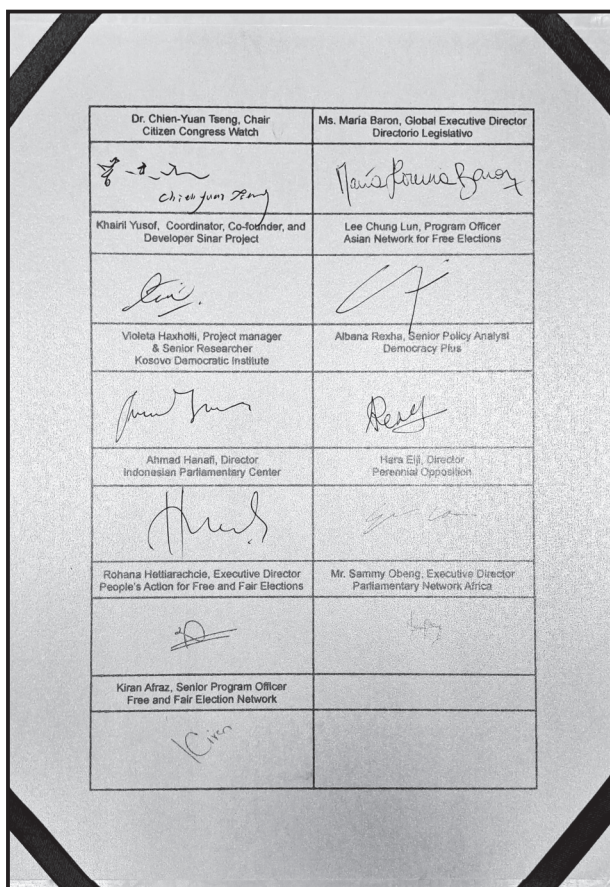 Dr. Chien-Yuan Tseng, Chair
Citizen Congress Watch
Ms. Maria Baron, Global Executive Director
Directorio Legislativo
Chien yuan Tseng
María Lorena Baron
Khairil Yusof, Coordinator, Co-founder, and
Developer Sinar Project
Lee Chung Lun, Program Officer
Asian Network for Free Elections
Violeta Haxholli, Project manager
& Senior Researcher
Kosovo Democratic Institute
Albana Rexha, Senior Policy Analyst
Democracy Plus
Ahmad Hanafi, Director
Indonesian Parliamentary Center
Hara Eiji, Director
Perennial Opposition
Rohana Hettiarachcie, Executive Director
People's Action for Free and Fair Elections
Mr. Sammy Obeng, Executive Director
Parliamentary Network Africa
Kiran Afraz, Senior Program Officer
Free and Fair Election Network
Kiran